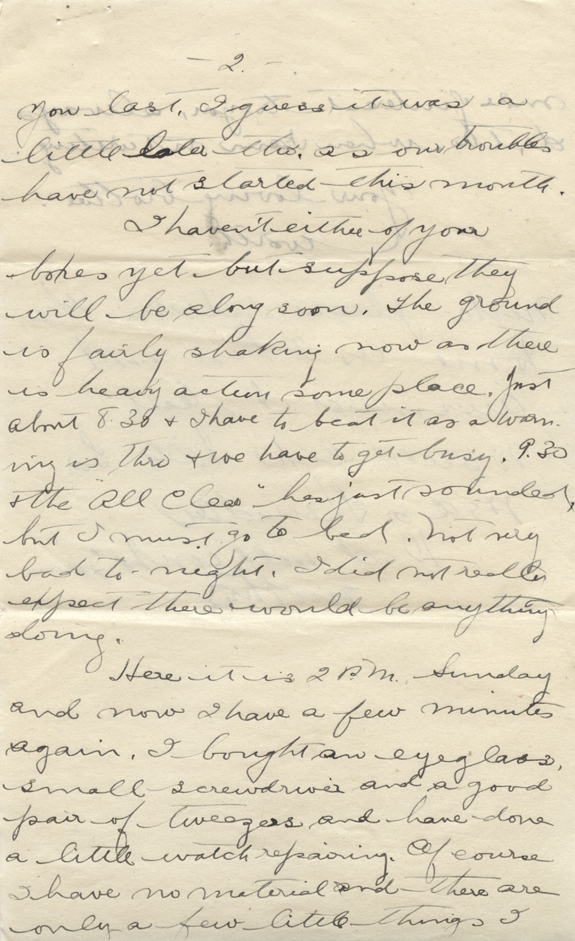 - 2. -
you last. I guess it was a
little later tho. as our troubles
have not started this month.
I haven't either of your
boxes yet but suppose they
will be along soon. The ground
is fairly shaking now as there
is heavy action some place. Just
about 8.30 + I have to beat it as a warn
ing is thro + we have to get busy. 9.30
+ the "All Clear" has just sounded,
but I must go to bed. Not very
bad to-night. I did not really
expect there would be anything
doing.
Here it is 2 P.M. Sunday
and now I have a few minutes
again. I bought an eyeglass,
small screwdriver and a good
pair of tweezers and have done
a little watch repairing. Of course
I have no material and there are
only a few little things I